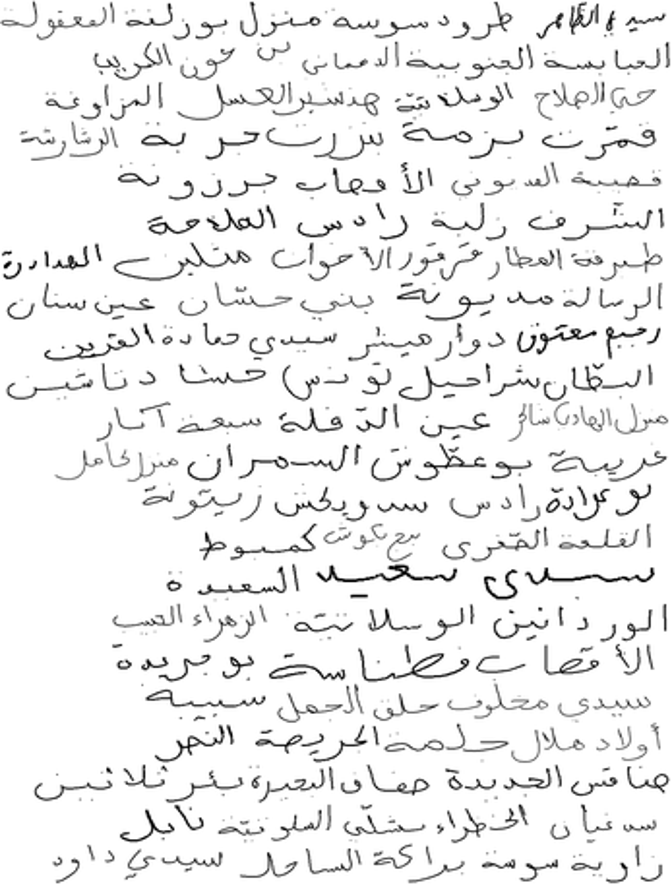 سيدي الظاهر طرود سوسة منزل بوزلفة المعقولة
العبابسة الجنوبية الدهماني بن عون الكريب
حي الصلاح الوسلاتية هنشير العسل المزاوغة
قمرت بزمة بنزرت جربة الرشارشة
قصيبة السيوفي الأقصاب حرزونة
الشرف زلبة رادس الفلاحة
طبرقة العطار قرقور الأخوات متلين الهدادرة
الرسالة مديونة بني حسان عين سنان
ربيع معتوق دوار هيشر سيدي حمادة القرين
البطان شراحيل تونس حسنا دناشين
منزل الهادي شاكر عين الدفلة سبعة آبار
غريبة بوعطوش السمران منزل كامل
بوعرادة رادس سدويكش زيتونة
القلعة الصغرى كمبوط
سيدي سعيد السعيدة
الوردانين الوسلاتية الزهراء
الأقصاب فطناسة بوجريدة
سيدي مخلوف حلق الجمل سبيبة
أولاد هلال حلمة الحريصة النحر
صفاقس الجديدة البحيرة بئر ثلاثين
سفيان الخطراء بشلي السلوقية نابل
زاوية سوسة براكة الساحل سيدي داود